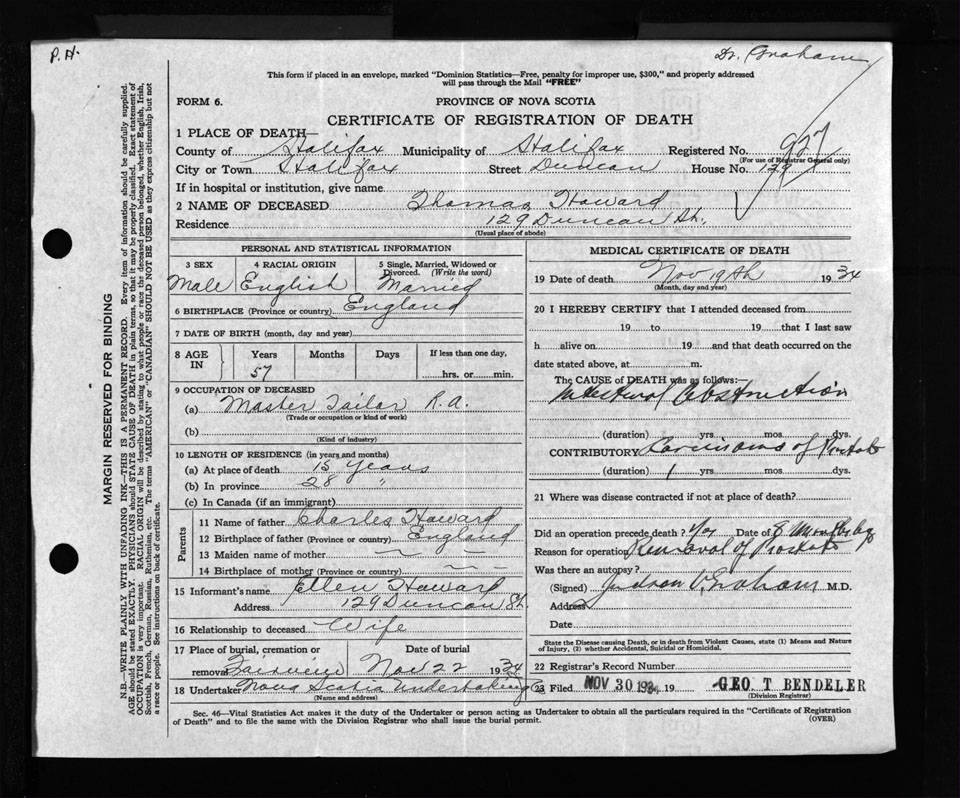 P.H.
Dr. Graham
This form if placed in an envelope, marked "Dominion Statistics—Free, penalty for improper use, $300," and properly addressed
will pass through the Mail "FREE"
FORM 6.
PROVINCE OF NOVA SCOTIA
CERTIFICATE OF REGISTRATION OF DEATH
1 PLACE OF DEATH—
County of Halifax Municipality of Halifax Registered No. 927
(For use of Registrar General only)
City or Town Halifax Street Duncan House No. 129
If in hospital or institution, give name
2 NAME OF DECEASED Thomas Howard
Residence 129 Duncan St.
(Usual place of abode)
PERSONAL AND STATISTICAL INFORMATION
3 SEX 4 RACIAL ORIGIN 5 Single, Married, Widowed or
Divorced. (Write the word)
Male English Married
6 BIRTHPLACE (Province or country) England
7 DATE OF BIRTH (month, day and year)
8 AGE IN Years Months Days If less than one day,
57 hrs. or min.
9 OCCUPATION OF DECEASED
(a) Master Tailor R.A.
(Trade or occupation or kind of work)
(b)
(Kind of industry)
10 LENGTH OF RESIDENCE (in years and months)
(a) At place of death 15 years
(b) In province 28 "
(c) In Canada (if an immigrant)
Parents
11 Name of father Charles Howard
12 Birthplace of father (Province or country) England
13 Maiden name of mother — —
14 Birthplace of mother (Province or country) — —
15 Informant's name Ellen Howard
Address 129 Duncan St.
16 Relationship to deceased Wife
17 Place of burial, cremation or Date of burial
removal Fairview Nov 22 1934
18 Undertaker Nova Scotia Undertaking Co
(Name and address)
MEDICAL CERTIFICATE OF DEATH
19 Date of death Nov 19th 1934
(Month, day and year)
20 I HEREBY CERTIFY that I attended deceased from
19 to 19 that I last saw
h alive on 19 and that death occurred on the
date stated above, at m.
The CAUSE OF DEATH was as follows:—
Intestinal Obstruction
(duration) yrs. mos. dys.
CONTRIBUTORY Carcinoma of Prostate
(duration) 1 yrs. mos. dys.
21 Where was disease contracted if not at place of death?
Did an operation precede death? Yes Date of 8 Months ago
Reason for operation Removal of Prostate
Was there an autopsy?
(Signed) Judson V. Graham M.D.
Address
Date
State the Disease causing Death, or in death from Violent Causes, state (1) Means and Nature
of Injury, (2) whether Accidental, Suicidal or Homicidal.
22 Registrar's Record Number
23 Filed NOV 30 1934 19 GEO. T BENDELER
(Division Registrar)
Sec. 46—Vital Statistics Act makes it the duty of the Undertaker or person acting as Undertaker to obtain all the particulars required in the "Certificate of Registration
of Death" and to file the same with the Division Registrar who shall issue the burial permit. (OVER)
MARGIN RESERVED FOR BINDING
N.B.—WRITE PLAINLY WITH UNFADING INK—THIS IS A PERMANENT RECORD. Every item of information should be carefully supplied.
AGE should be stated EXACTLY. PHYSICIANS should STATE CAUSE OF DEATH in plain terms, so that it may be properly classified. Exact statement of
OCCUPATION is very important. RACIAL ORIGIN will be described by stating to what people or race the deceased person belonged, whether English, Irish,
Scottish, French, German, Russian, Ruthenian, etc. The terms "AMERICAN" or "CANADIAN" SHOULD NOT BE USED as they express citizenship but not
a race or people. See instructions on back of certificate.